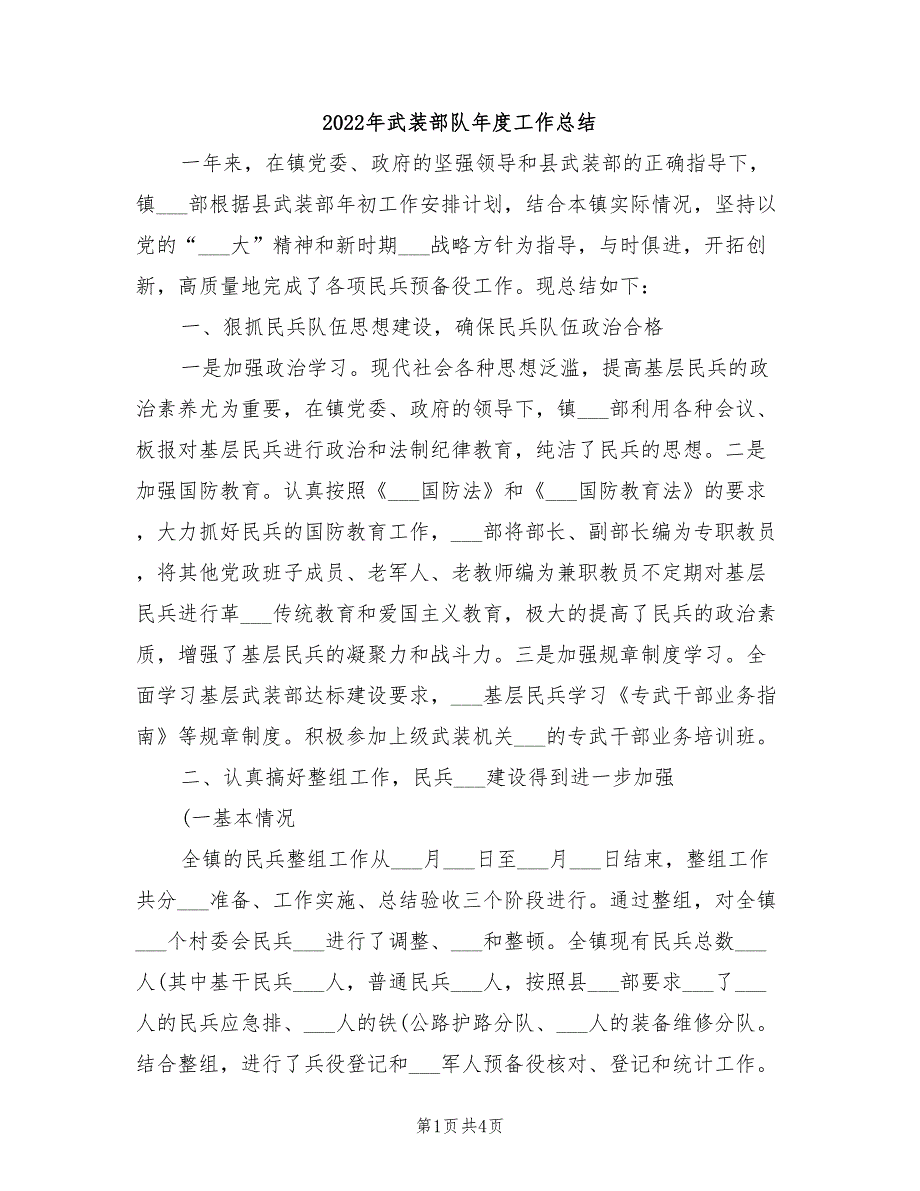 2022年武装部队年度工作总结
一年来，在镇党委、政府的坚强领导和县武装部的正确指导下，
镇___部根据县武装部年初工作安排计划，结合本镇实际情况，坚持以
党的“___大”精神和新时期___战略方针为指导，与时俱进，开拓创
新，高质量地完成了各项民兵预备役工作。现总结如下：
一、狠抓民兵队伍思想建设，确保民兵队伍政治合格
一是加强政治学习。现代社会各种思想泛滥，提高基层民兵的政
治素养尤为重要，在镇党委、政府的领导下，镇___部利用各种会议、
板报对基层民兵进行政治和法制纪律教育，纯洁了民兵的思想。二是
加强国防教育。认真按照《___国防法》和《___国防教育法》的要求
，大力抓好民兵的国防教育工作，___部将部长、副部长编为专职教员
，将其他党政班子成员、老军人、老教师编为兼职教员不定期对基层
民兵进行革___传统教育和爱国主义教育，极大的提高了民兵的政治素
质，增强了基层民兵的凝聚力和战斗力。三是加强规章制度学习。全
面学习基层武装部达标建设要求，___基层民兵学习《专武干部业务指
南》等规章制度。积极参加上级武装机关___的专武干部业务培训班。
二、认真搞好整组工作，民兵___建设得到进一步加强
(一基本情况
全镇的民兵整组工作从___月___日至___月___日结束，整组工作
共分___准备、工作实施、总结验收三个阶段进行。通过整组，对全镇
___个村委会民兵___进行了调整、___和整顿。全镇现有民兵总数___
人(其中基干民兵___人，普通民兵___人，按照县___部要求___了___
人的民兵应急排、___人的铁(公路护路分队、___人的装备维修分队。
结合整组，进行了兵役登记和___军人预备役核对、登记和统计工作。
第1页共4页